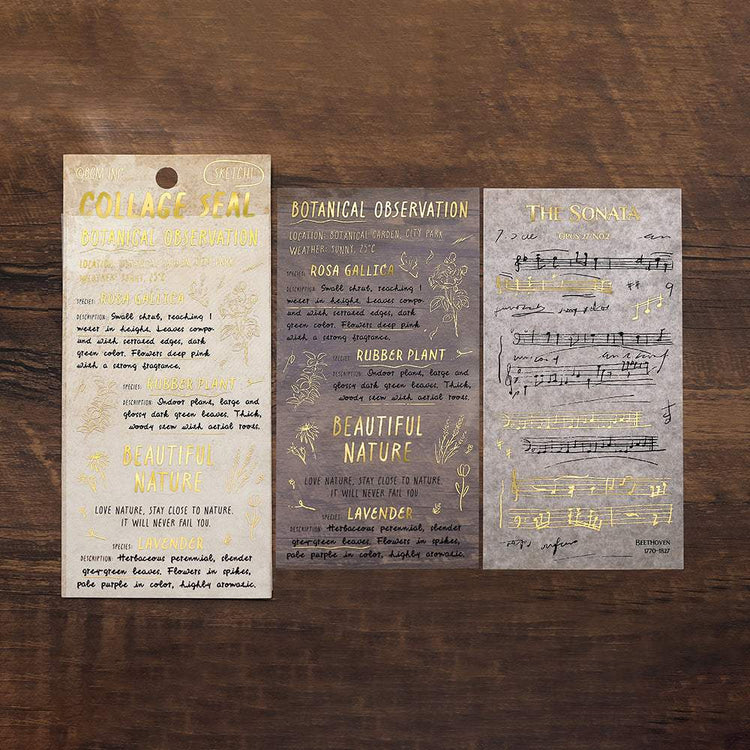 SKETCH
COLLAGE SEAL
BOTANICAL OBSERVATION
LOCATION: BOTANICAL GARDEN, CITY PARK
WEATHER: SUNNY, 25°C
SPECIES: ROSA GALLICA
DESCRIPTION: Small shrub, reaching 1
meter in height. Leaves compo-
und with serrated edges, dark
green color. Flowers deep pink
with a strong fragrance.
SPECIES: RUBBER PLANT
DESCRIPTION: Indoor plant, large and
glossy dark green leaves. Thick,
woody stem with aerial roots.
BEAUTIFUL
NATURE
LOVE NATURE, STAY CLOSE TO NATURE.
IT WILL NEVER FAIL YOU.
SPECIES: LAVENDER
DESCRIPTION: Herbaceous perennial, slender
grey-green leaves. Flowers in spikes,
pale purple in color, highly aromatic.
BOTANICAL OBSERVATION
LOCATION: BOTANICAL GARDEN, CITY PARK
WEATHER: SUNNY, 25°C
SPECIES: ROSA GALLICA
DESCRIPTION: Small shrub, reaching 1
meter in height. Leaves compo-
und with serrated edges, dark
green color. Flowers deep pink
with a strong fragrance.
SPECIES: RUBBER PLANT
DESCRIPTION: Indoor plant, large and
glossy dark green leaves. Thick,
woody stem with aerial roots.
BEAUTIFUL
NATURE
LOVE NATURE, STAY CLOSE TO NATURE.
IT WILL NEVER FAIL YOU.
SPECIES: LAVENDER
DESCRIPTION: Herbaceous perennial, slender
grey-green leaves. Flowers in spikes,
pale purple in color, highly aromatic.
THE SONATA
OPUS 27 NO.2
BEETHOVEN
1770-1827